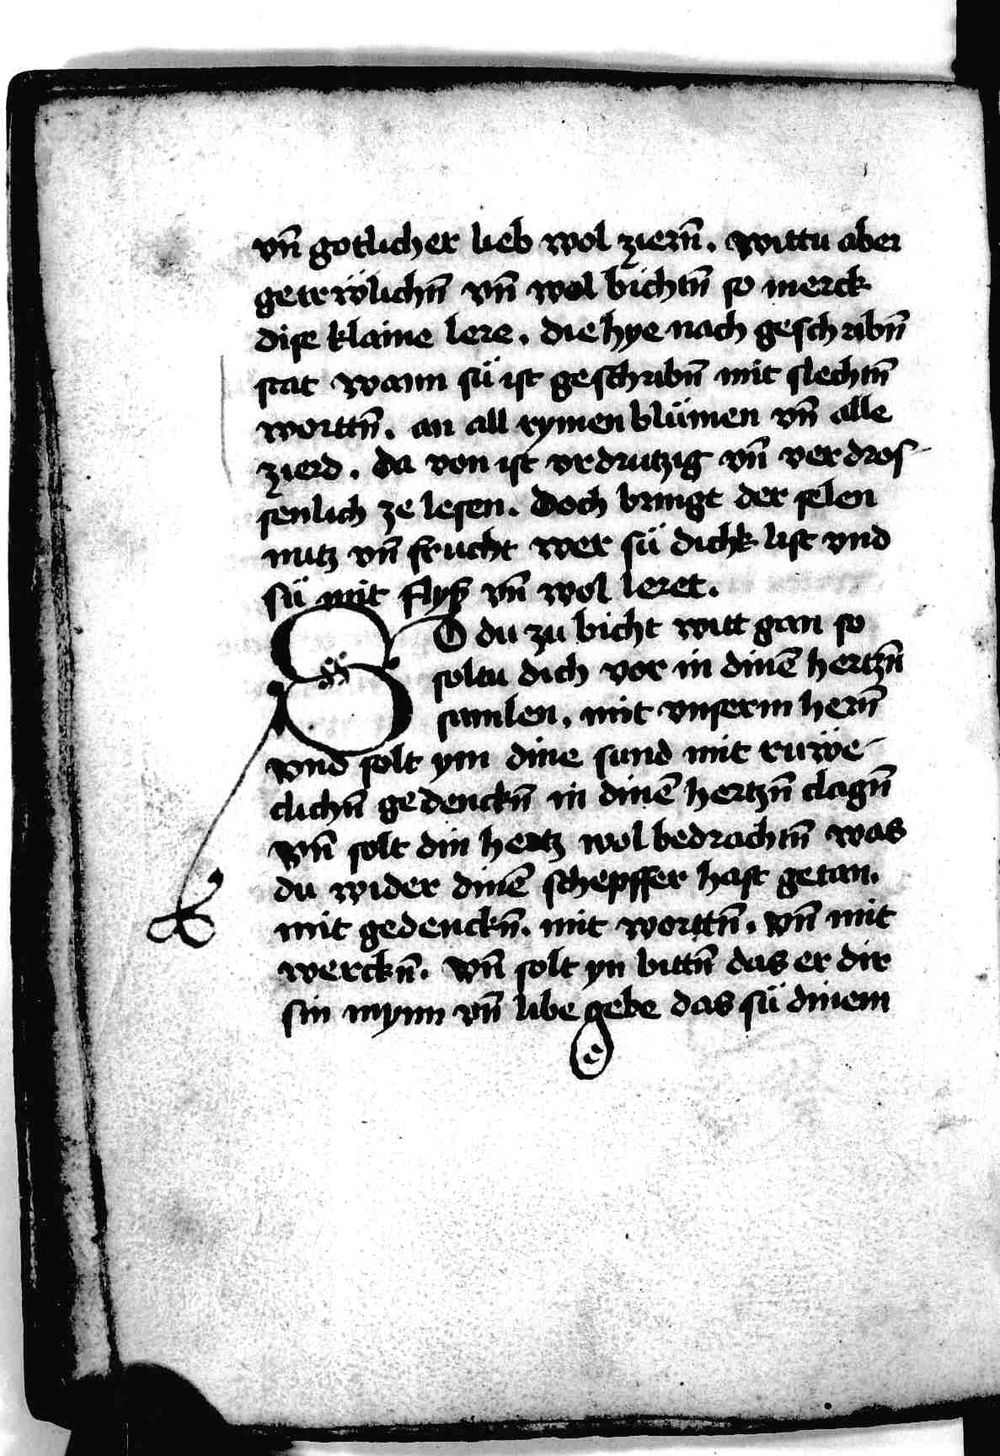 vn̄ gotlicher lieb wol ziern̄. wittu aber
getrwlichn̄ vn̄ wol bichtn̄ so merck
dise klaine lere. die hye nach geschribn̄
stat wann sü ist geschribn̄ mit slechtn̄
worttn̄. an all rymen blümen vn̄ alle
zierd. da von ist vrdrutzig vn̄ verdros-
senlich ze lesen. Doch bringt der selen
nutz vn̄ frucht wer sü dichk list vnd
sü mit flyß vn̄ wol leret.
SO du zu bicht witt gan so
soltu dich vor in dinē hertzn̄
samlen. mit vnserm hern̄
vnd solt ym dine sund mit rüwe-
clichn̄ gedenckn̄ in dinē hertzn̄ clagn̄
vn̄ solt din hertz wol bedrachtn̄ was
du wider dinē schepffer hast getan.
mit gedenckn̄. mit worttn̄. vn̄ mit
werckn̄. vn̄ solt yn bittn̄ das er dir
sin mynn vn̄ libe gebe das sü dinem
e